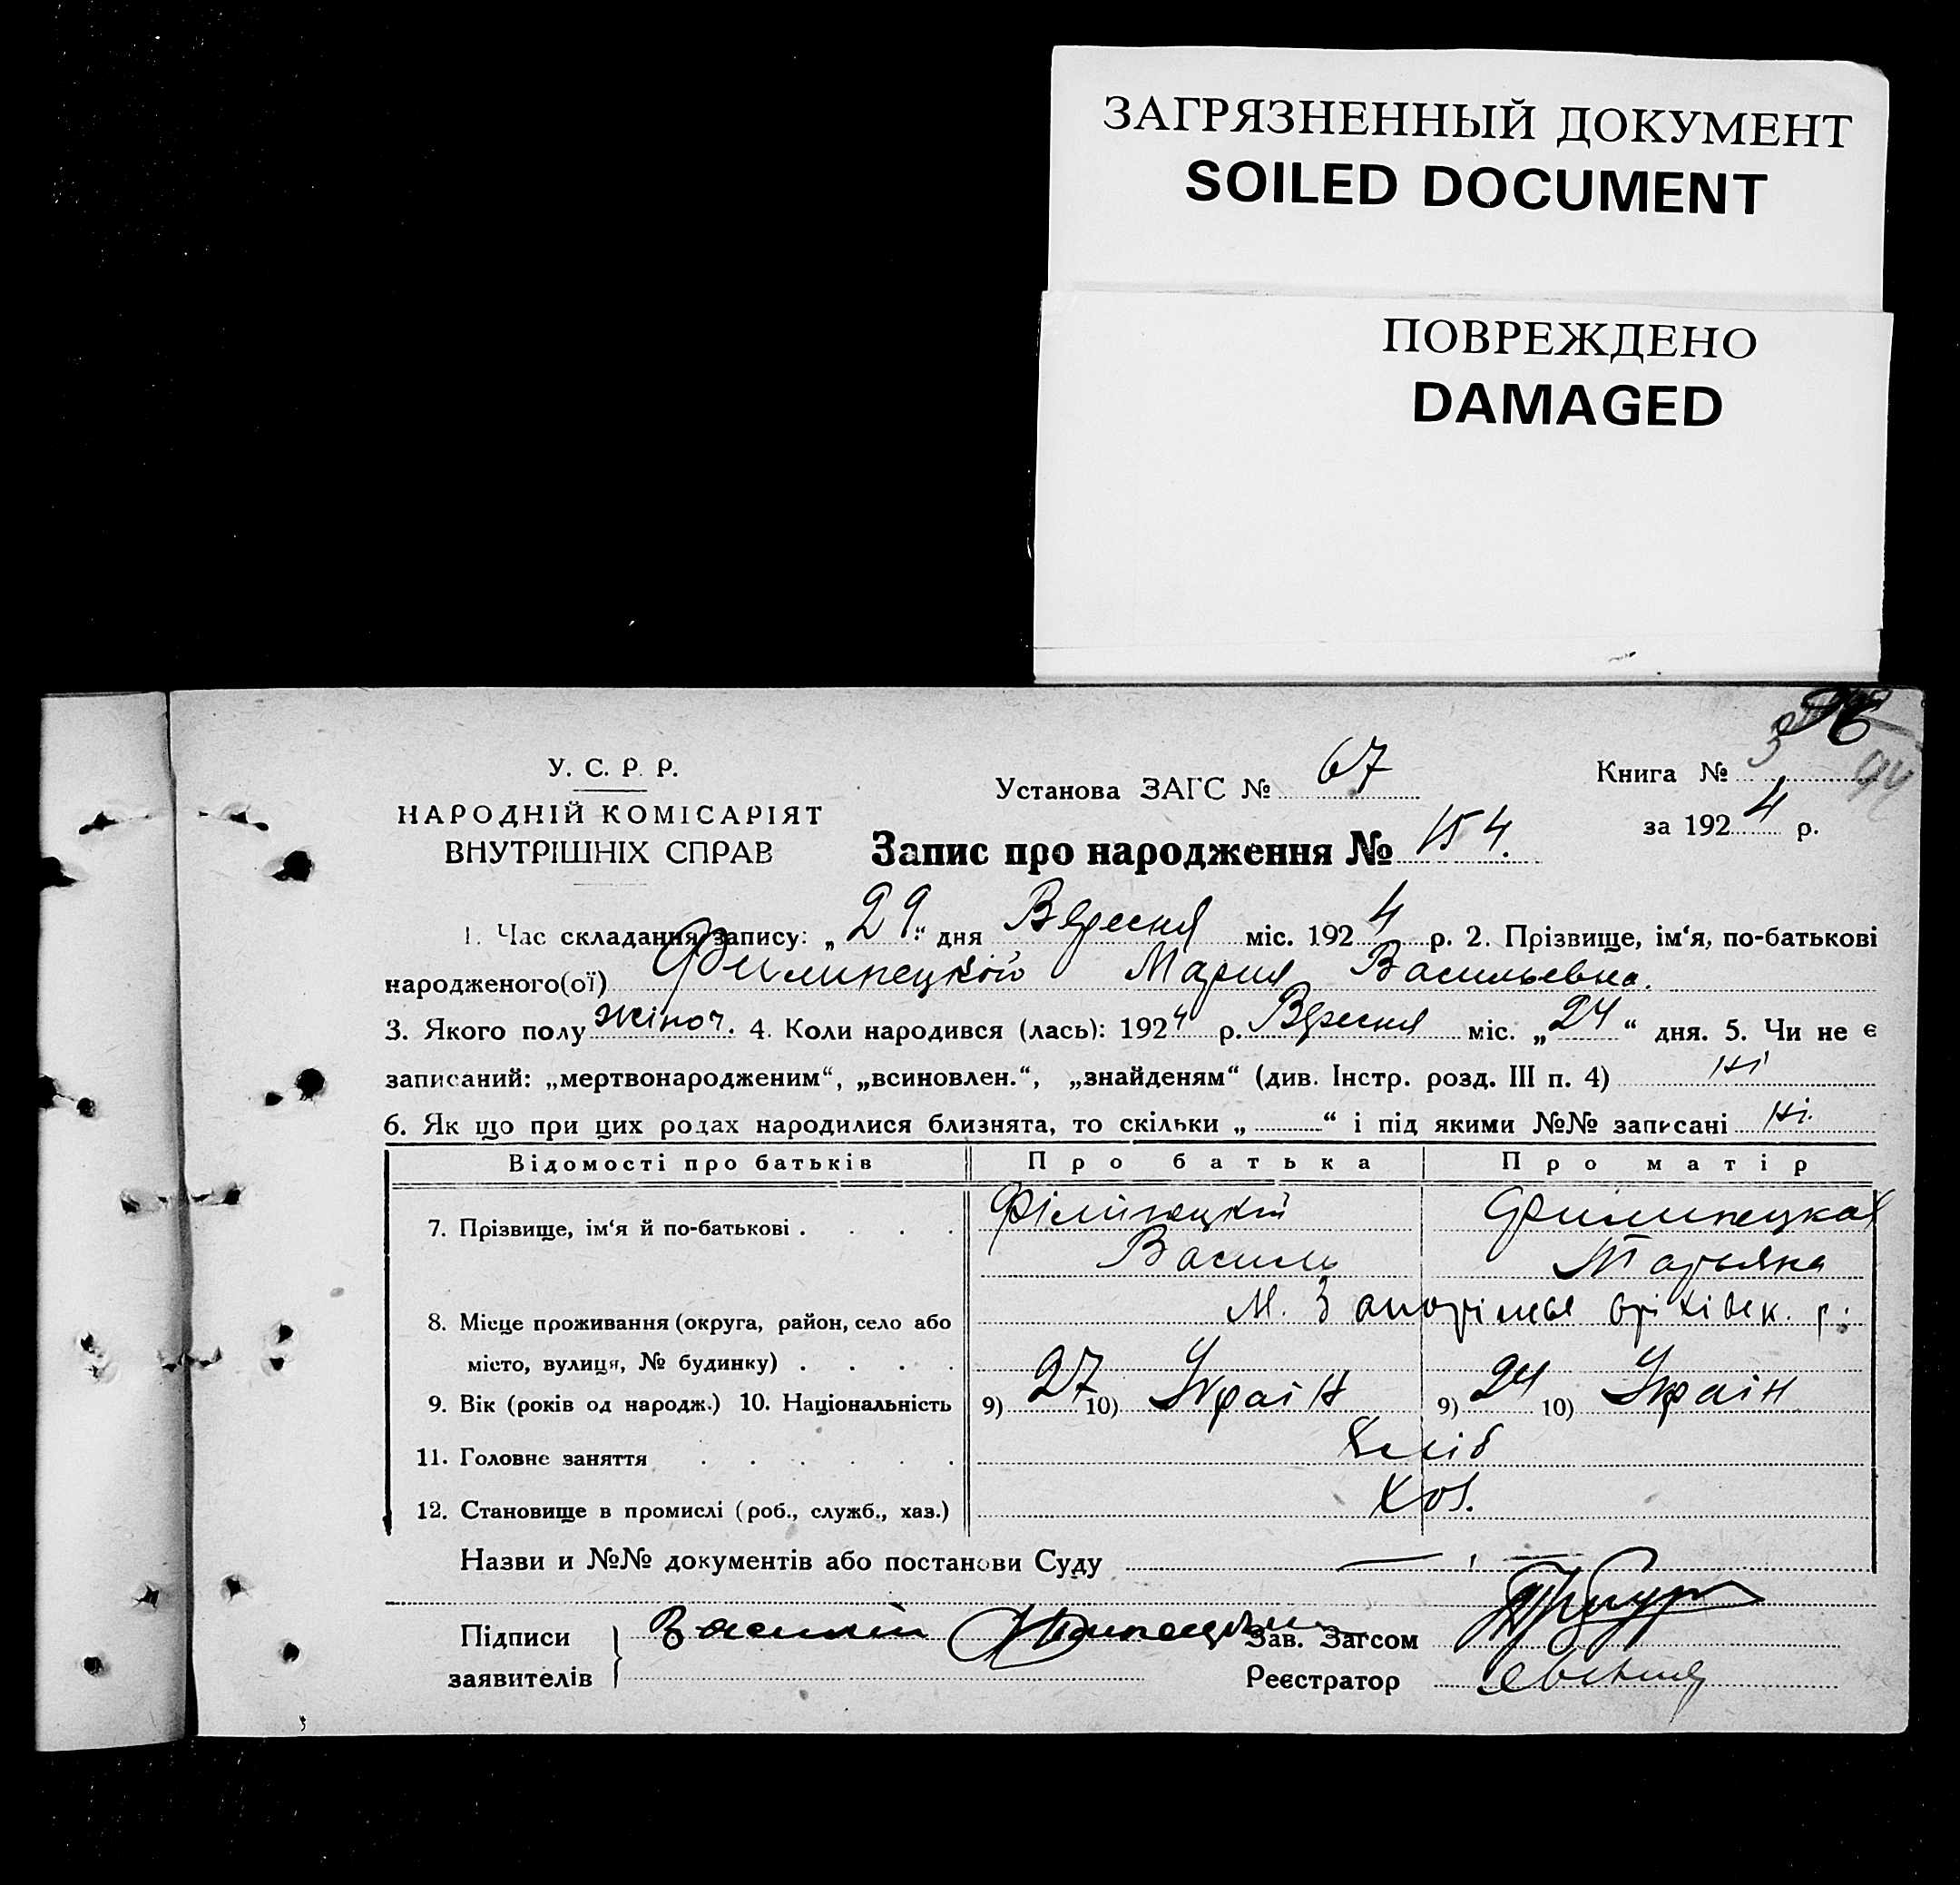 ЗАГРЯЗНЕННЫЙ ДОКУМЕНТ
SOILED DOCUMENT
ПОВРЕЖДЕНО
DAMAGED
У. С. Р. Р.
НАРОДНІЙ КОМІСАРІЯТ
ВНУТРІШНІХ СПРАВ
Установа ЗАГС № 67
Книга № 3
за 1924 р.
Запис про народження № 154.
1. Час складання запису: „29“ дня Вересня міс. 1924 р. 2. Прізвище, ім‘я, по-батькові
народженого(ої) Филипецкій Мария Васильевна.
3. Якого полу жіноч. 4. Коли народився (лась): 1924 р. Вересня міс. „24“ дня. 5. Чи не є
записаний: „мертвонародженим“, „всиновлен.“, „знайденям“ (див. Інстр. розд. III п. 4) Ні
6. Як що при цих родах народилися близнята, то скільки „ “ і під якими №№ записані Ні.
Відомості про батьків Про батька Про матір
7. Прізвище, ім‘я й по-батькові . . . . Філіпецкій Филипецкая
Василь Татьяна
8. Місце проживання (округа, район, село або М. Запоріжья Оріхівск. р.
місто, вулиця, № будинку) . . . .
9. Вік (років од народж.) 10. Національність 9) 27 10) Україн 9) 24 10) Україн
11. Головне заняття . . . . . . Хліб
12. Становище в промислі (роб., служб., хаз.) Хоз.
Назви и №№ документів або постанови Суду
Підписи Василій Филипецкий Зав. Загсом
заявителів Реєстратор